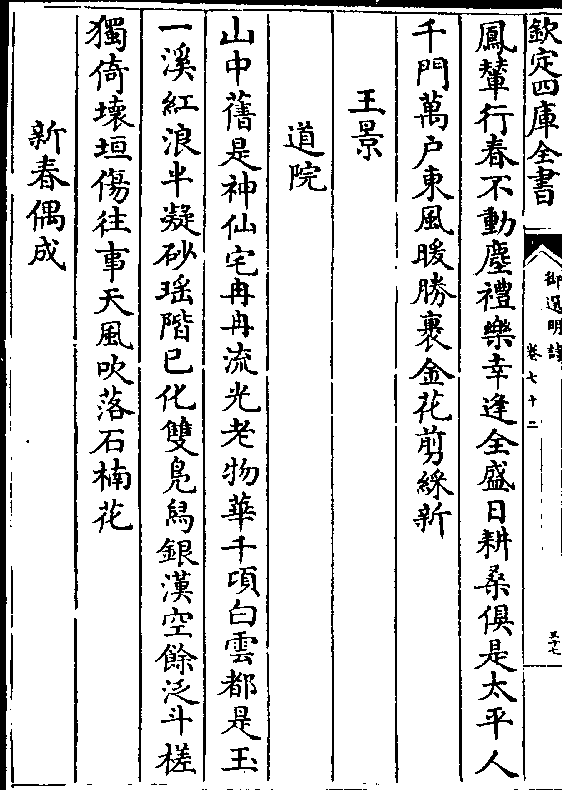 欽定四庫全書
御選明詩
卷七十二
三十七
鳳輦行春不動塵禮樂幸逢全盛日耕桑俱是太平人
千門萬戶東風暖勝裹金花剪綵新
王景
道院
山中舊是神仙宅冉冉流光老物華千頃白雲都是玉
一溪紅浪半凝砂瑶階已化雙鳧舄銀漢空餘泛斗槎
獨倚壞垣傷往事天風吹落石楠花
新春偶成